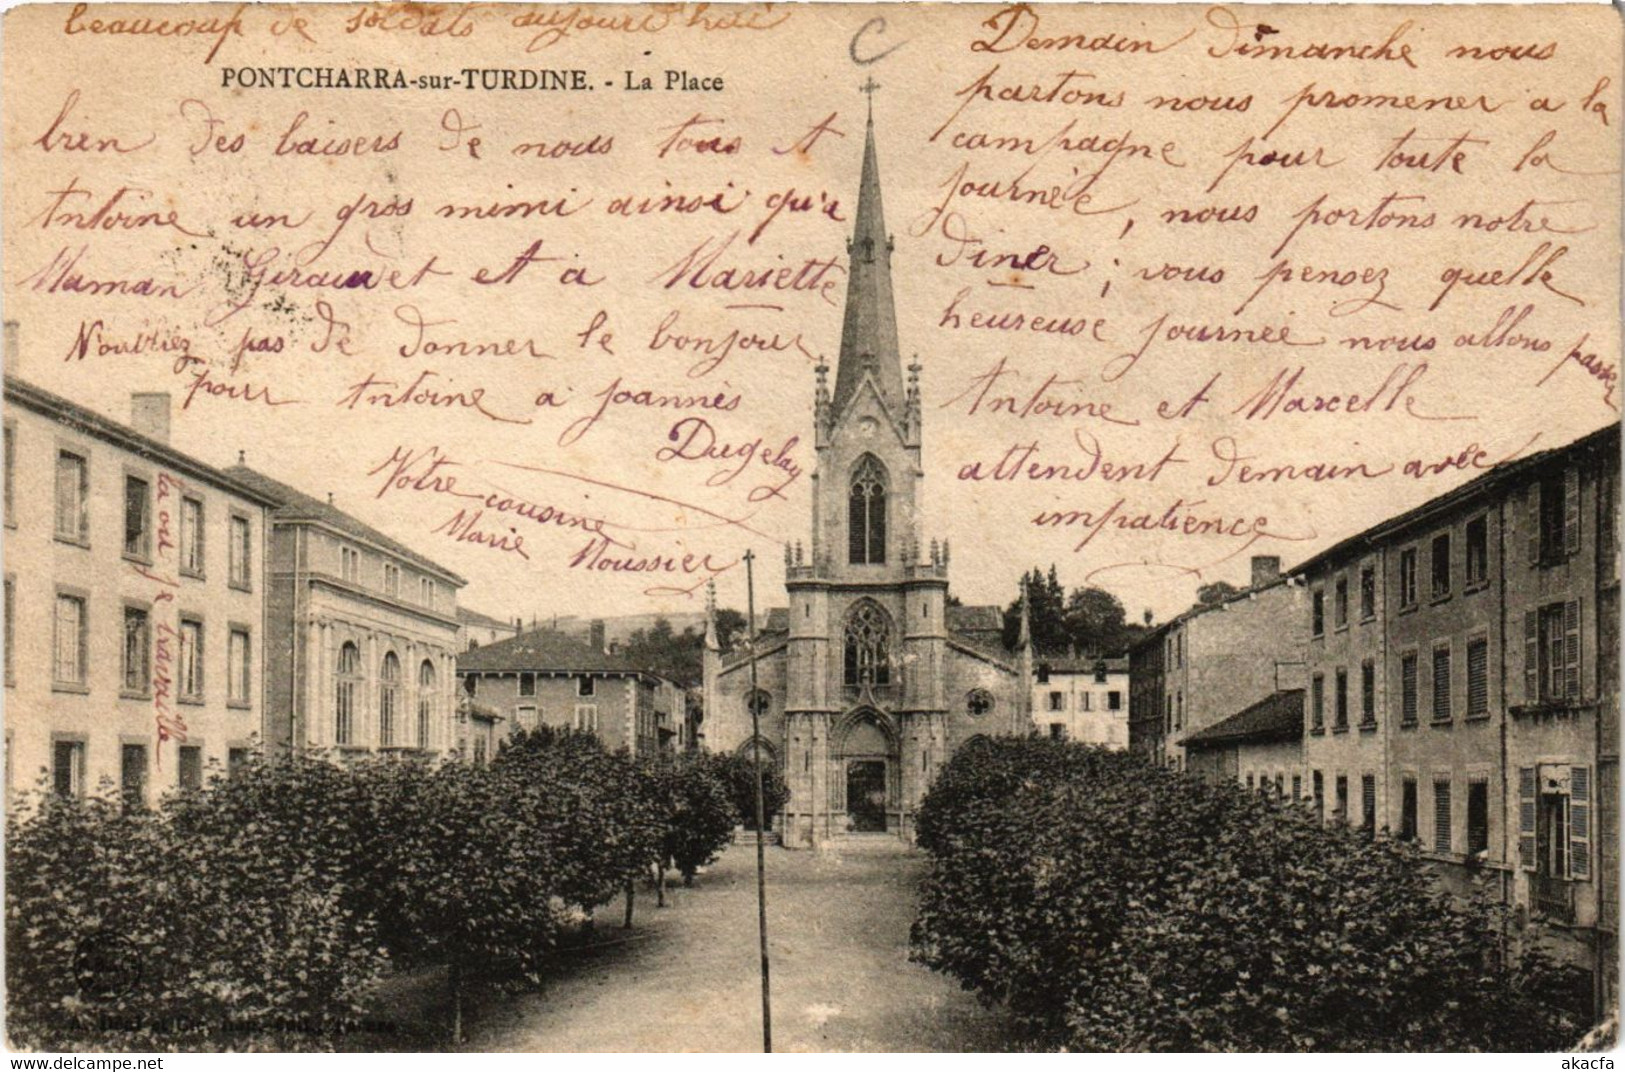 beaucoup de soldats aujourd'hui
PONTCHARRA-sur-TURDINE. - La Place
C
bien des baisers de nous tous et
Antoine un gros mimi ainsi qu'a
Maman Girauvet et a Mariette
N'oubliez pas de donner le bonjour
pour Antoine a Joannès
Dugelay
Votre cousine
Marie Moussier
Demain dimanche nous
partons nous promener a la
campagne pour toute la
journée, nous portons notre
diner; vous pensez quelle
heureuse journée nous allons passer
Antoine et Marcelle
attendent demain avec
impatience
la où je travaille
akacfa